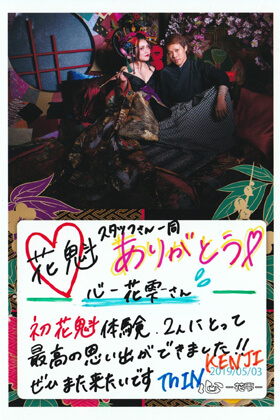 スタッフさん一同
花魁 ありがとう
心-花雫-さん
初花魁体験、2人にとって
最高の思い出ができました!!
ぜひまた来たいです THIN KENJI
2019/05/03
心-花雫-